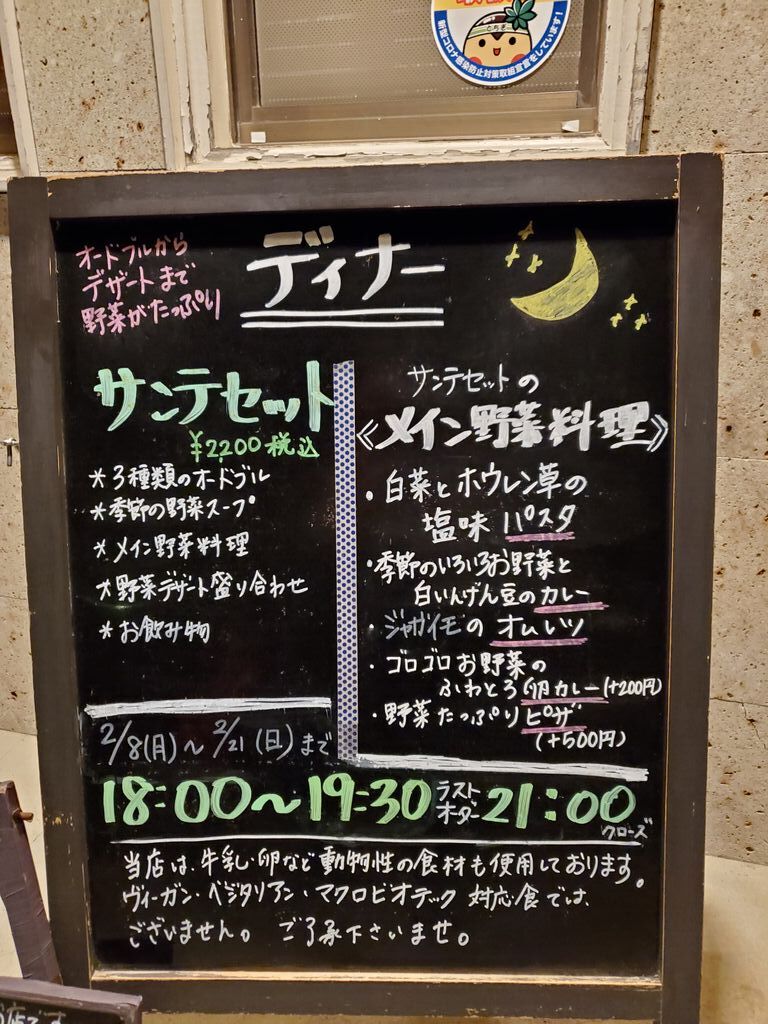 新型コロナ感染防止対策取組宣言をしています!
とちぎ
オードブルから
デザートまで
野菜がたっぷり
ディナー
サンテセット
¥2200税込
*3種類のオードブル
*季節の野菜スープ
*メイン野菜料理
*野菜デザート盛り合わせ
*お飲み物
サンテセットの
《メイン野菜料理》
・白菜とホウレン草の
塩味パスタ
・季節のいろいろお野菜と
白いんげん豆のカレー
・ジャガイモのオムレツ
・ゴロゴロお野菜の
ふわとろ卵カレー(+200円)
・野菜たっぷりピザ
(+500円)
2/8(月)~2/21(日)まで
18:00~19:30ラストオーダー21:00
クローズ
当店は、牛乳・卵など動物性の食材も使用しております。
ヴィーガン・ベジタリアン・マクロビオテック対応食では、
ございません。ご了承下さいませ。